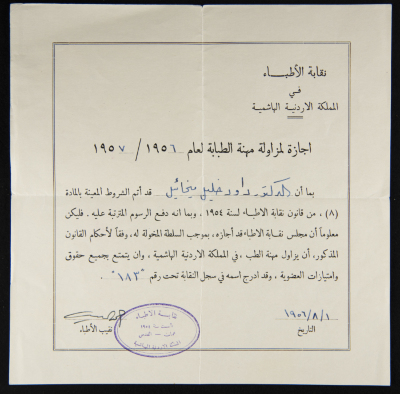 نقابة الأطبـــاء
في
المملكة الاردنية الهاشمية
اجازة لمزاولة مهنة الطبابة لعام ١٩٥٦ / ١٩٥٧
بما أن الدكتور داود خليل ميخائيل قد أتم الشروط المعينة بالمادة
(٨) ، من قانون نقابة الاطباء لسنة ١٩٥٤ ، وبما انه دفع الرسوم المترتبة عليه . فليكن
معلوماً أن مجلس نقابة الاطباء قد أجازه ، بموجب السلطة المخولة له ، وفقاً لأحكام القانون
المذكور، أن يزاول مهنة الطب ، في المملكة الاردنية الهاشمية ، وان يتمتع بجميع حقوق
وامتيازات العضوية ، وقد ادرج اسمه في سجل النقابة تحت رقم "١٨٣" .
١٩٥٦/٨/١
التاريخ
نقيب الأطباء
نقابة الأطباء
المملكة الاردنية الهاشمية